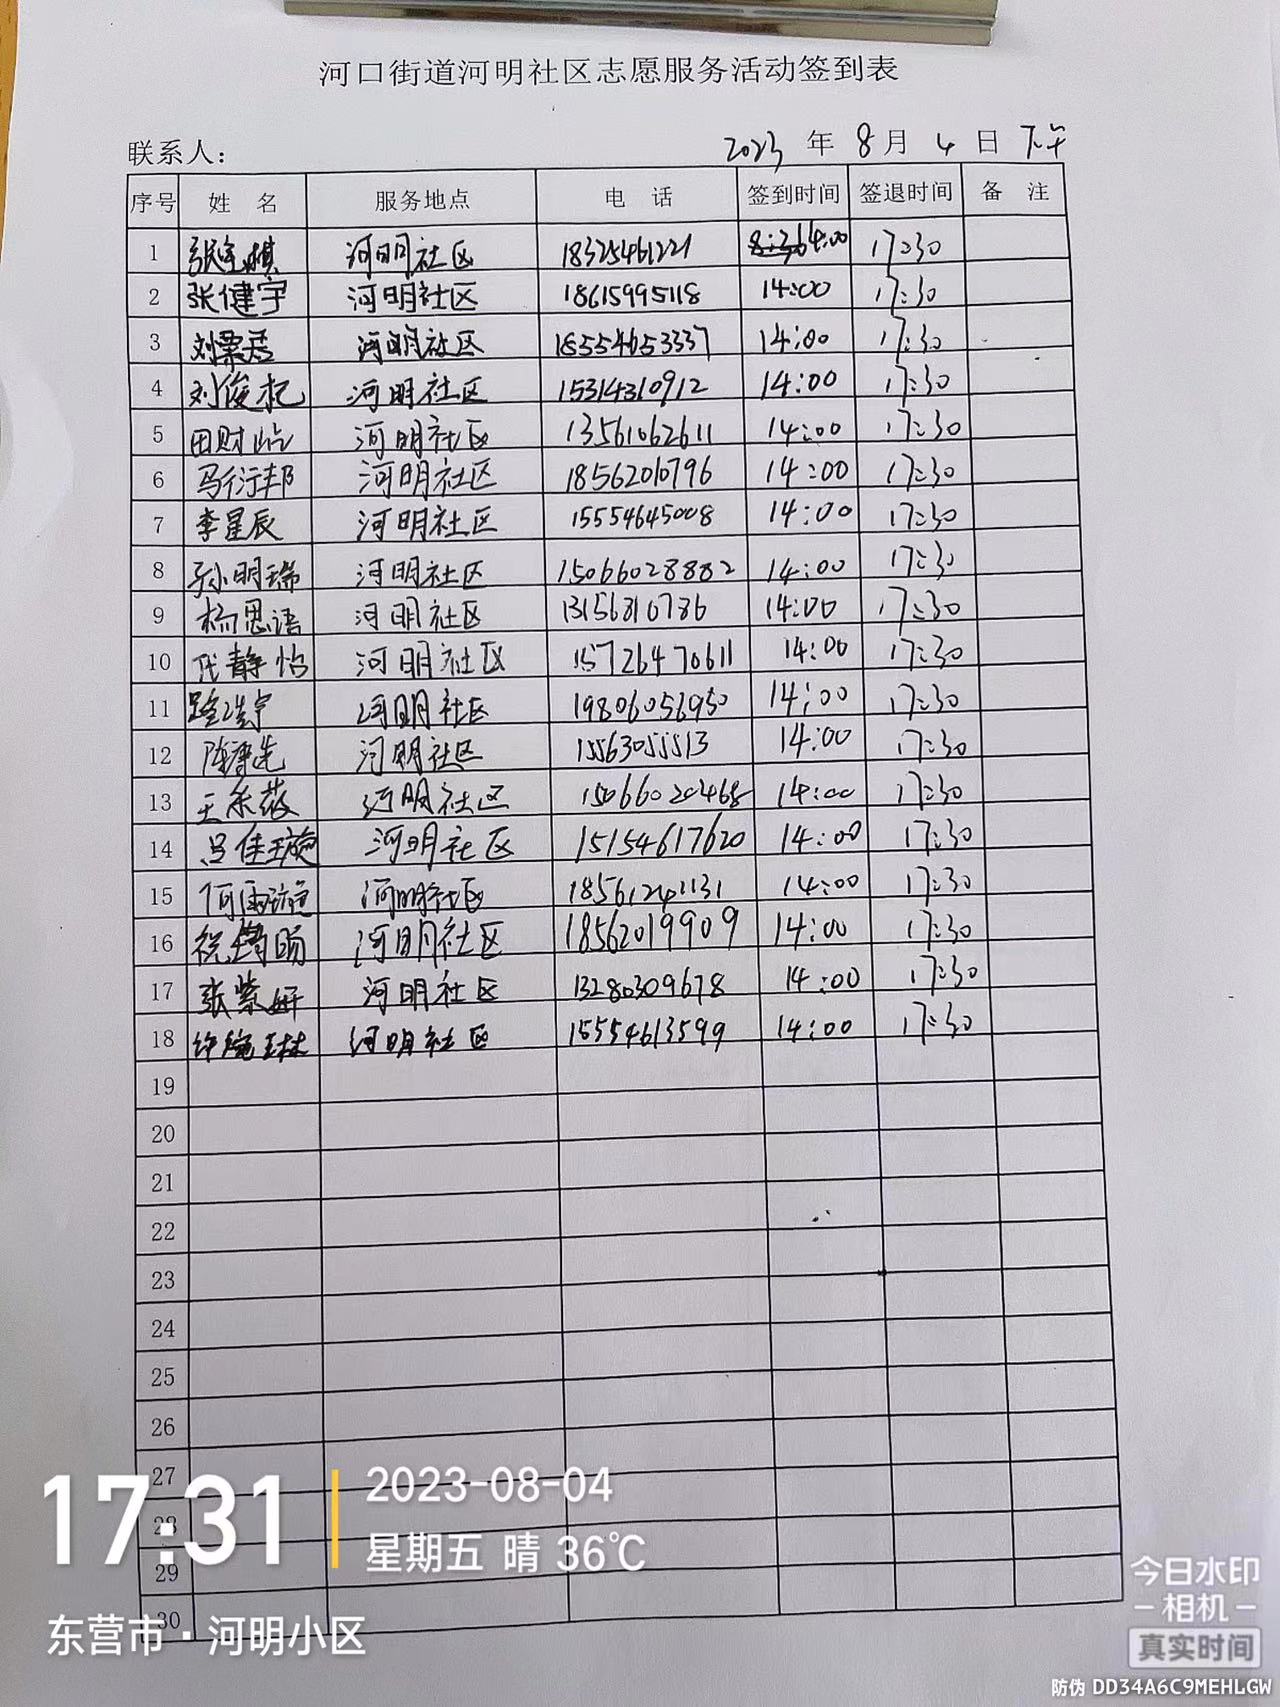 河口街道河明社区志愿服务活动签到表
联系人： 2023 年 8 月 4 日 下午
序号 姓 名 服务地点 电 话 签到时间 签退时间 备 注
1 河明社区 18325461221 14:00 17:30
2 张健宇 河明社区 18615995118 14:00 17:30
3 河明社区 18554653337 14:00 17:30
4 刘俊杞 河明社区 15314310912 14:00 17:30
5 河明社区 13561062611 14:00 17:30
6 马衍邦 河明社区 18562010796 14:00 17:30
7 李星辰 河明社区 15554645008 14:00 17:30
8 孙明瑞 河明社区 15066028882 14:00 17:30
9 杨思语 河明社区 13156810786 14:00 17:30
10 张静怡 河明社区 15726470611 14:00 17:30
11 河明社区 19806056950 14:00 17:30
12 河明社区 15563055513 14:00 17:30
13 河明社区 15066020468 14:00 17:30
14 吕佳璇 河明社区 15154617620 14:00 17:30
15 河明社区 18561242131 14:00 17:30
16 河明社区 18562019909 14:00 17:30
17 张紫妍 河明社区 13280309678 14:00 17:30
18 河明社区 15554613599 14:00 17:30
19
20
21
22
23
24
25
26
27
28
29
30
17:31
2023-08-04
星期五 晴 36℃
东营市·河明小区
今日水印
相机
真实时间
防伪 DD34A6C9MEHLGW